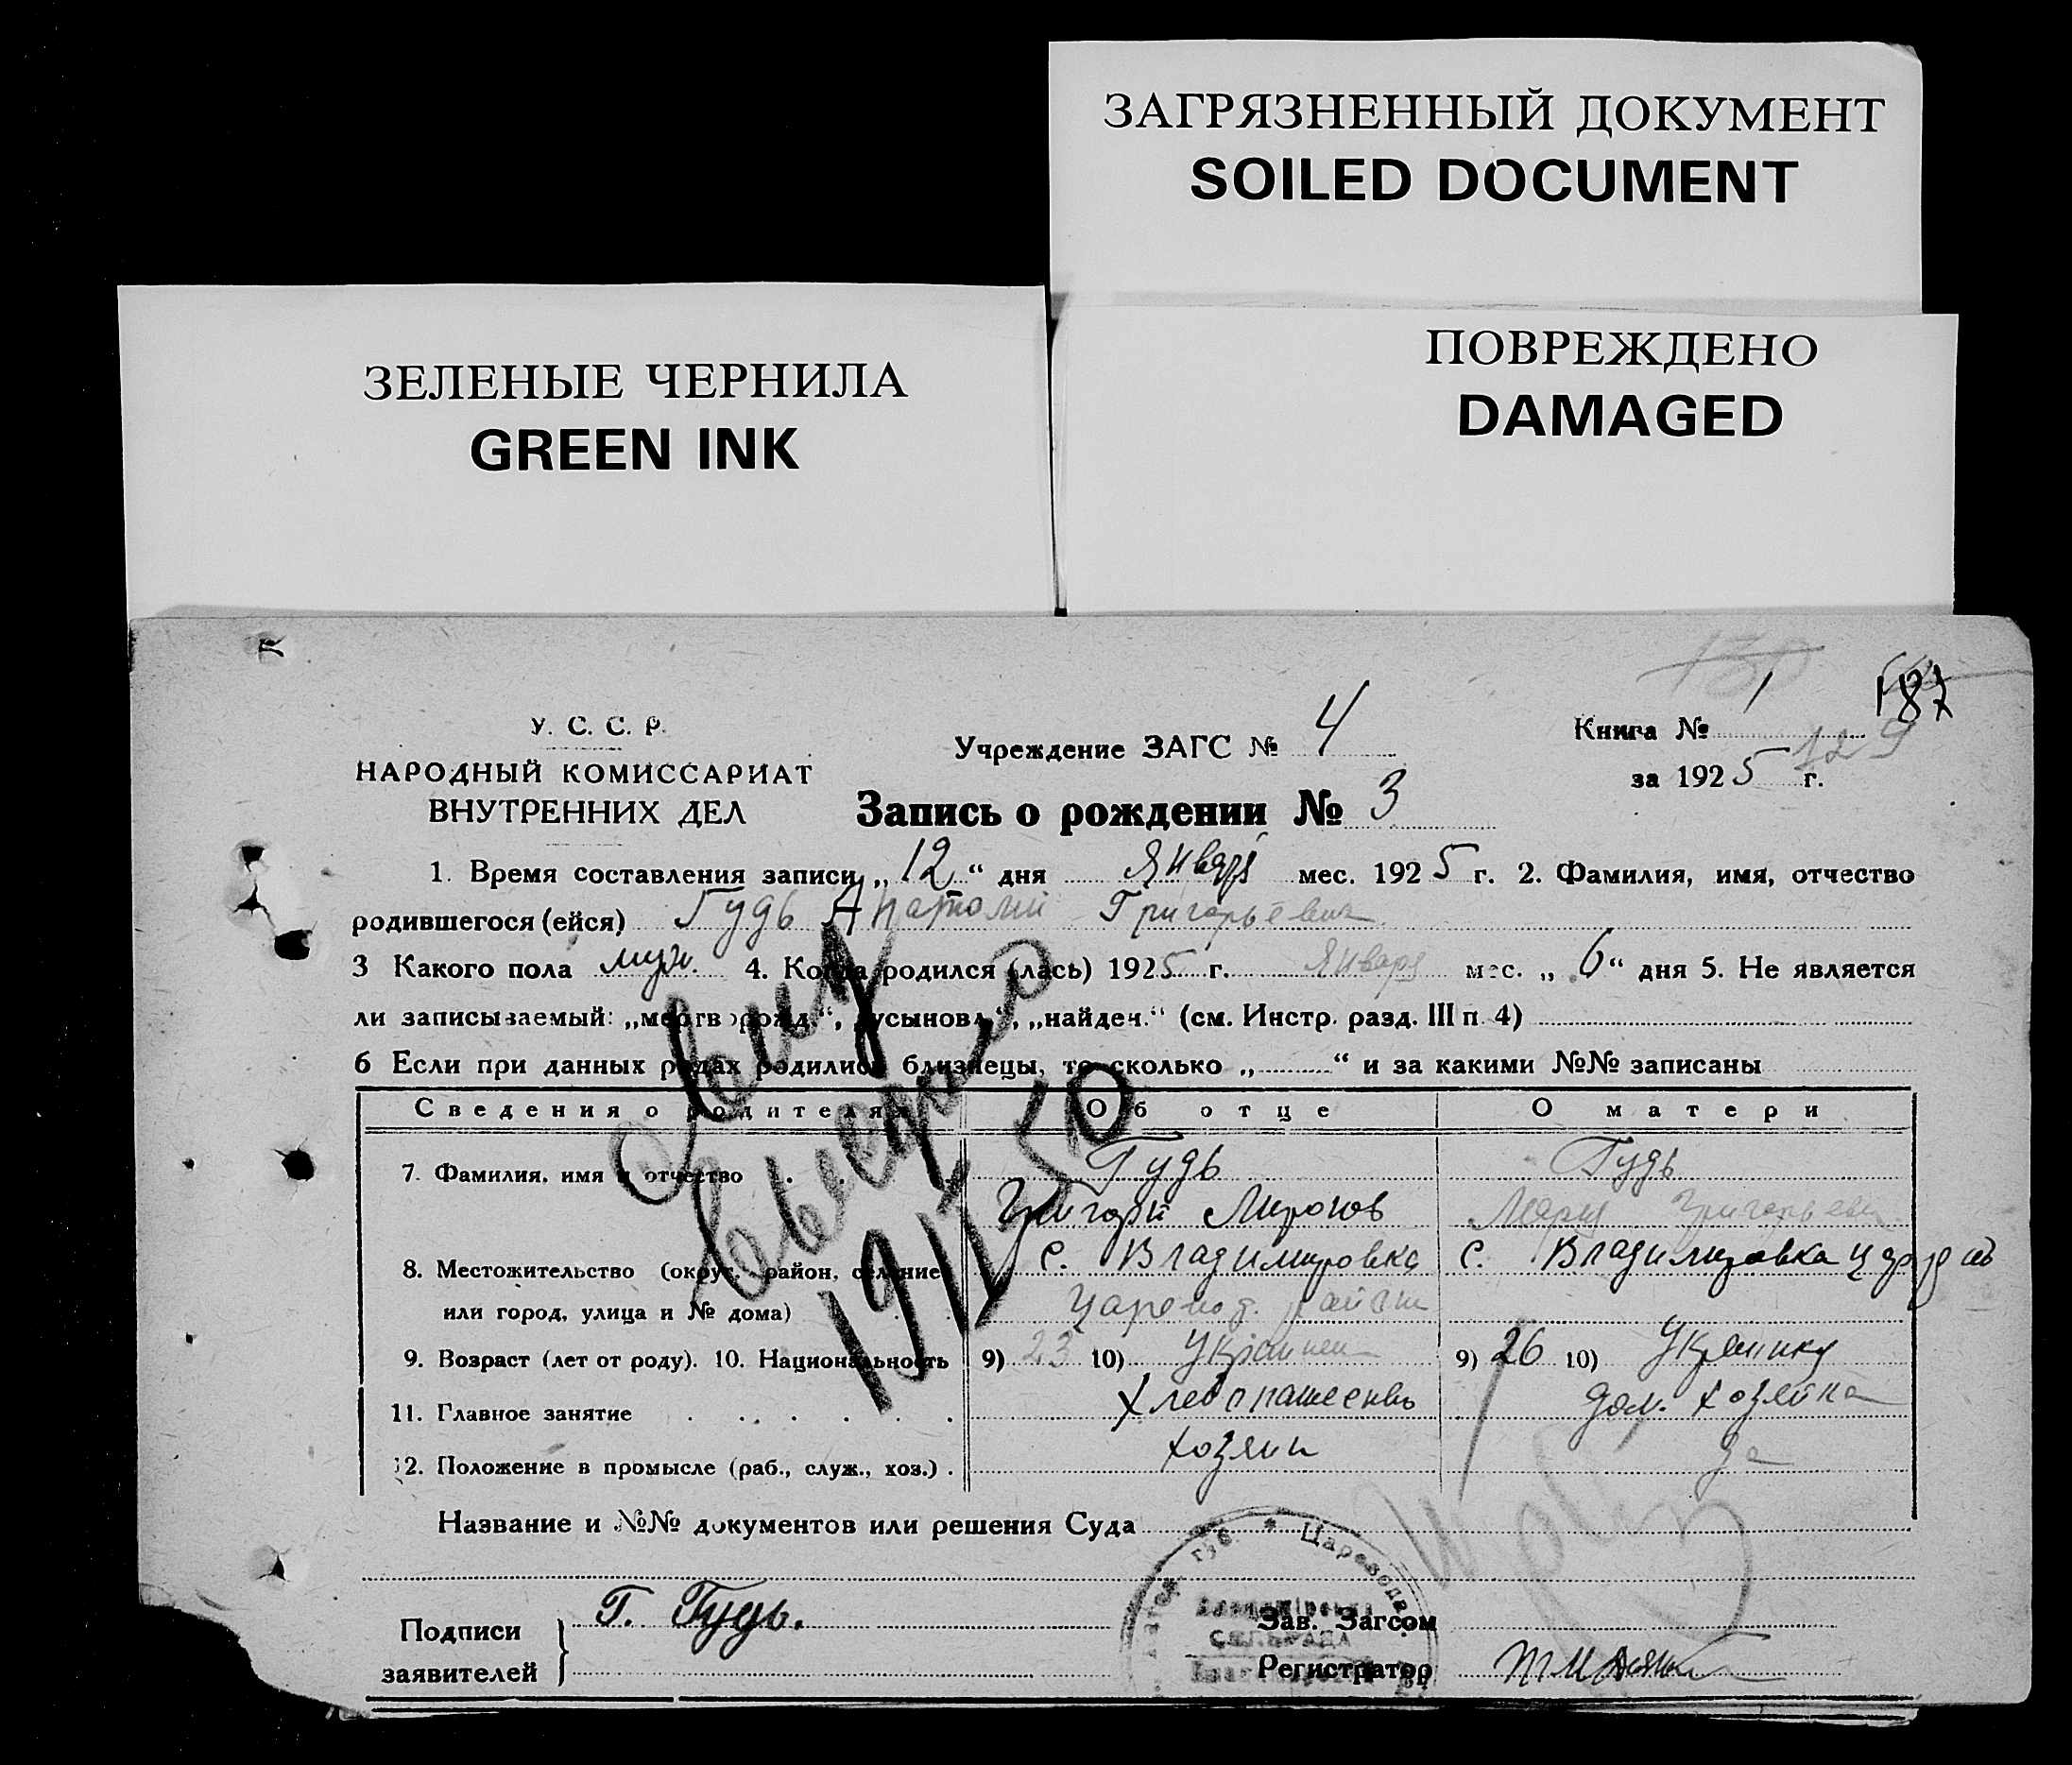 ЗАГРЯЗНЕННЫЙ ДОКУМЕНТ
SOILED DOCUMENT
ЗЕЛЕНЫЕ ЧЕРНИЛА
GREEN INK
ПОВРЕЖДЕНО
DAMAGED
130
187
129
У. С. С. Р.
НАРОДНЫЙ КОМИССАРИАТ
ВНУТРЕННИХ ДЕЛ
Учреждение ЗАГС № 4
Книга № 1
за 1925 г.
Запись о рождении № 3
1. Время составления записи „12“ дня Январь мес. 1925 г. 2. Фамилия, имя, отчество
родившегося (ейся) Гудь Анатолий Григорьевич
3 Какого пола муж. 4. Когда родился (лась) 1925 г. Января мес. „6“ дня 5. Не является
ли записываемый: „мертворожд“, „усыновл.“, „найден.“ (см. Инстр. разд. III п. 4)
6 Если при данных родах родились близнецы, то сколько „ “ и за какими №№ записаны
Сведения о родителях Об отце О матери
7. Фамилия, имя и отчество Гудь Гудь
Григорий Миронов Мария Григорьевн
8. Местожительство (округ, район, селение с. Владимировка с. Владимировка
или город, улица и № дома)
9. Возраст (лет от роду). 10. Национальность 9) 23 10) Украинец 9) 26 10) Украинка
11. Главное занятие Хлебопашество дом. хозяйка
12. Положение в промысле (раб., служ., хоз.) хозяин
Название и №№ документов или решения Суда
Подписи
заявителей
Г. Гудь.
Зав. Загсом
Регистратор
губ. * Царевод
СІЛЬРАДА